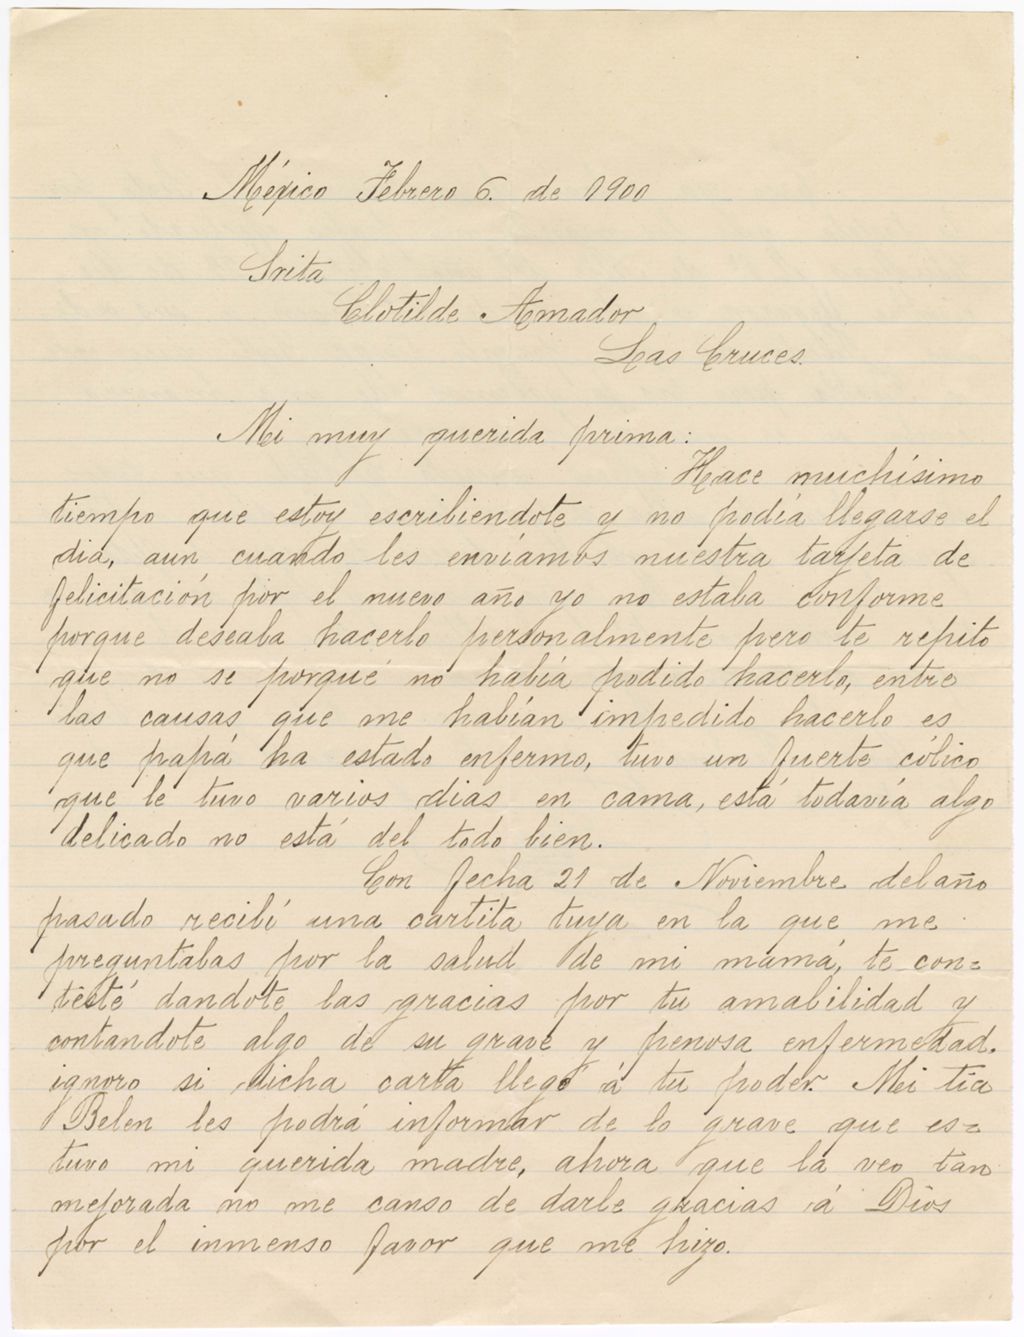 México Febrero 6. de 1900
Srita
Clotilde Amador
Las Cruces.
Mi muy querida prima:
Hace muchísimo
tiempo que estoy escribiendote y no podía llegarse el
dia, aun cuando les enviamos nuestra tarjeta de
felicitación por el nuevo año yo no estaba conforme
porque deseaba hacerlo personalmente pero te repito
que no se porqué no había podido hacerlo, entre
las causas que me habían impedido hacerlo es
que papá ha estado enfermo, tuvo un fuerte cólico
que le tuvo varios dias en cama, está todavía algo
delicado no está del todo bien.
Con fecha 21 de Noviembre del año
pasado recibí una cartita tuya en la que me
preguntabas por la salud de mi mamá, te con=
testé dandote las gracias por tu amabilidad y
contandote algo de su grave y penosa enfermedad.
ignoro si dicha carta llegó á tu poder. Mi tia
Belen les podrá informar de lo grave que es=
tuvo mi querida madre, ahora que la veo tan
mejorada no me canso de darle gracias á Dios
por el inmenso favor que me hizo.